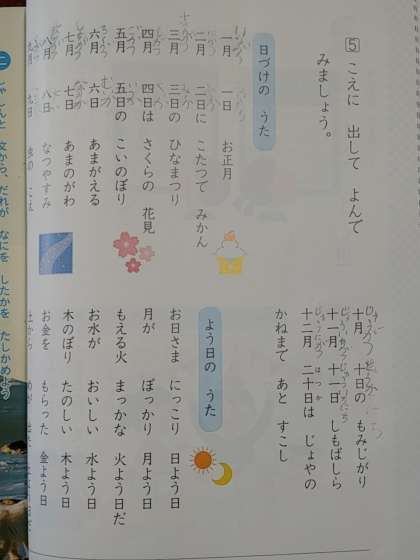 5 こえに 出して よんで
みましょう。
日づけの うた
一月 一日 お正月
二月 二日に こたつで みかん
三月 三日の ひなまつり
四月 四日は さくらの 花見
五月 五日の こいのぼり
六月 六日 あまがえる
七月 七日 あまのがわ
八月 八日 なつやすみ
九月 九日
十月 十日の もみじがり
十一月 十一日 しもばしら
十二月 二十日は じょやの
はつか
かねまで あと すこし
よう日の うた
お日さま にっこり 日よう日
月が ぽっかり 月よう日
もえる火 まっかな 火よう日だ
お水が おいしい 水よう日
木のぼり たのしい 木よう日
お金を もらった 金よう日
土から
二
文から、だれが なにを したかを たしかめよう